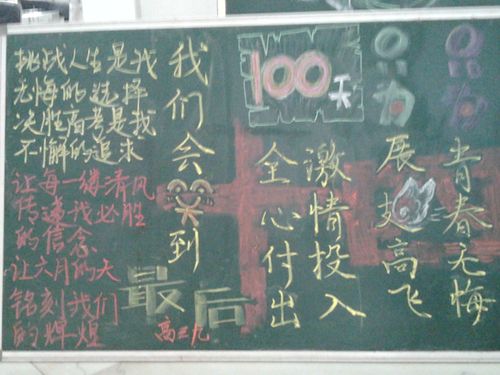 挑战人生是我
无悔的选择
决胜高考是我
不懈的追求
让每一缕清风
传递我必胜
的信念
让六月的天
铭刻我们
的辉煌
我们会到
最后
高三九
100天
全心付出
激情投入
展翅高飞
青春无悔